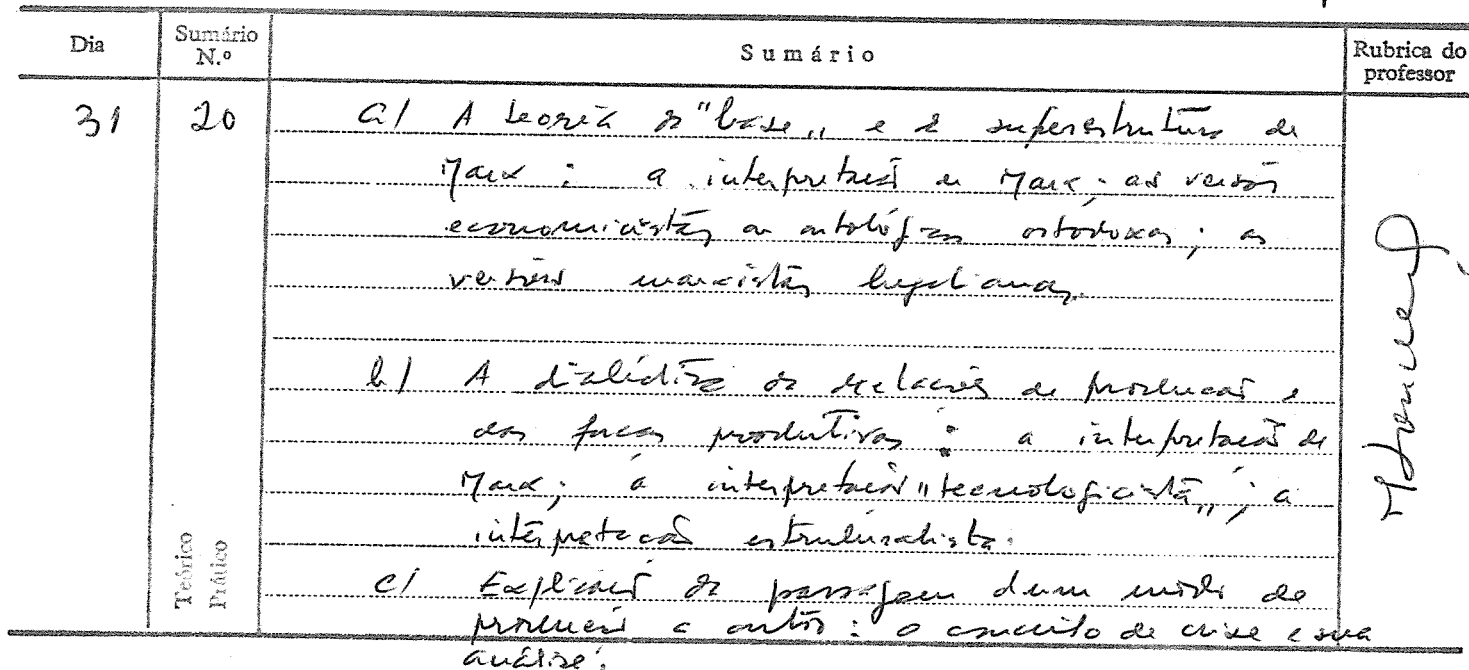 Dia Sumário N.º Sumário Rubrica do professor
31 20 a/ A teoria da "base" e da superestrutura de
Marx : a interpretação de Marx ; as versões
economicistas ou ontológicas ortodoxas ; as
versões marxistas hegelianas.
b/ A dialéctica das relações de produção e
das forças produtivas : a interpretação de
Marx ; a interpretação "tecnologicista" ; a
interpretação estruturalista.
Teórico
Prático
c/ Explicação da passagem dum modo de
produção a outro : o conceito de crise e sua
análise.